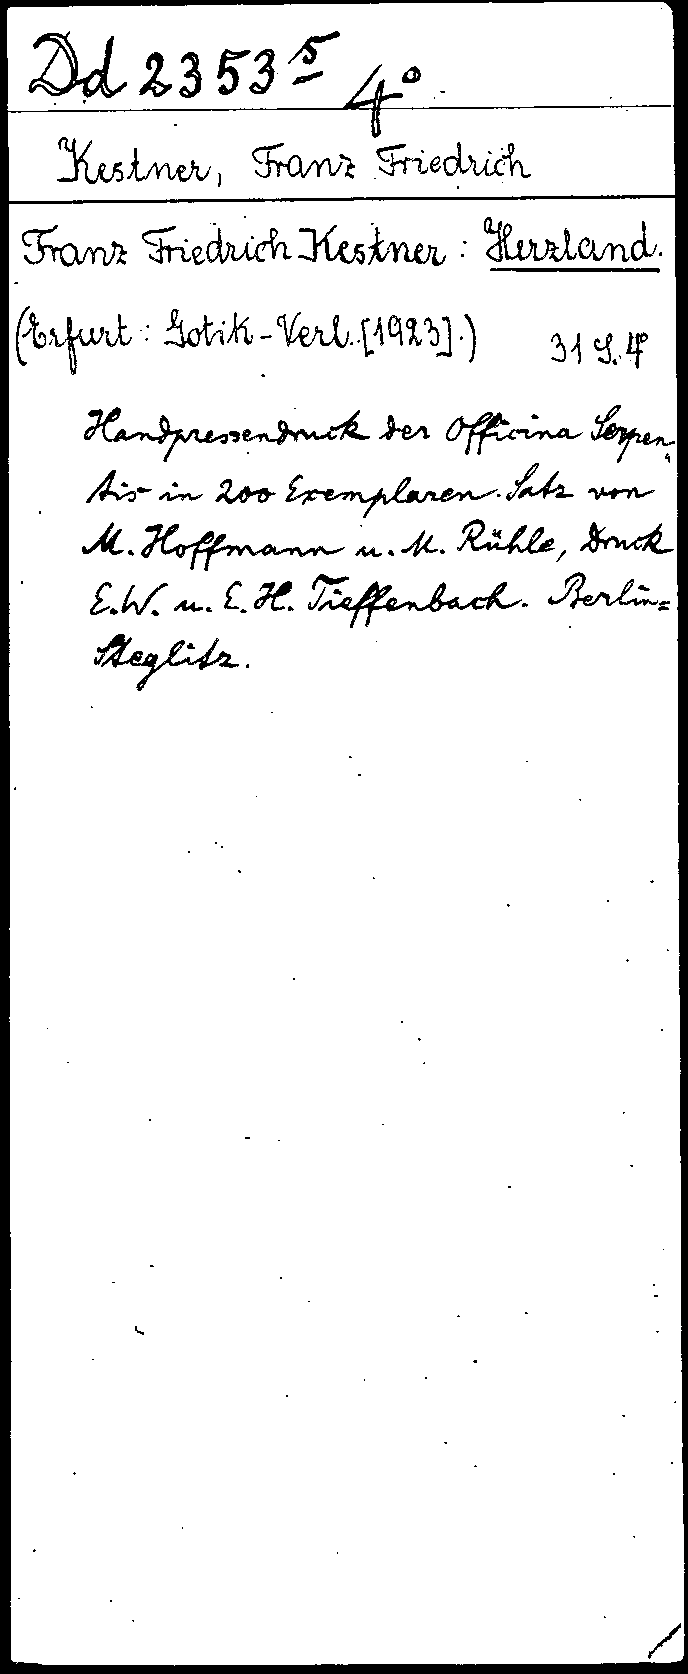 Dd 2353⁵ 4°
Kestner, Franz Friedrich
Franz Friedrich Kestner: Herzland.
(Erfurt: Gotik-Verl. [1923].) 31 S. 4°
Handpressendruck der Officina Serpen-
tis in 200 Exemplaren. Satz von
M. Hoffmann u. M. Rühle, Druck
E. W. u. E. H. Tieffenbach. Berlin=
Steglitz.